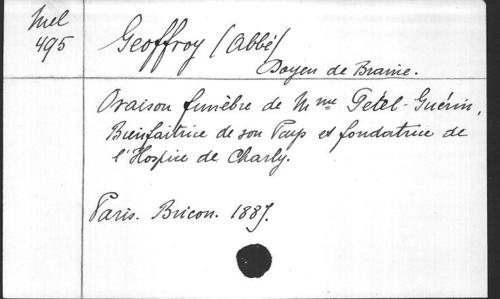 Mel
495
Geoffroy (Abbé)
Doyen de Braine.
Oraison funèbre de Mme Petel-Guérin,
Bienfaitrice de son Pays et fondatrice de
l'Hospice de Charly.
Paris. Bricon. 1887.